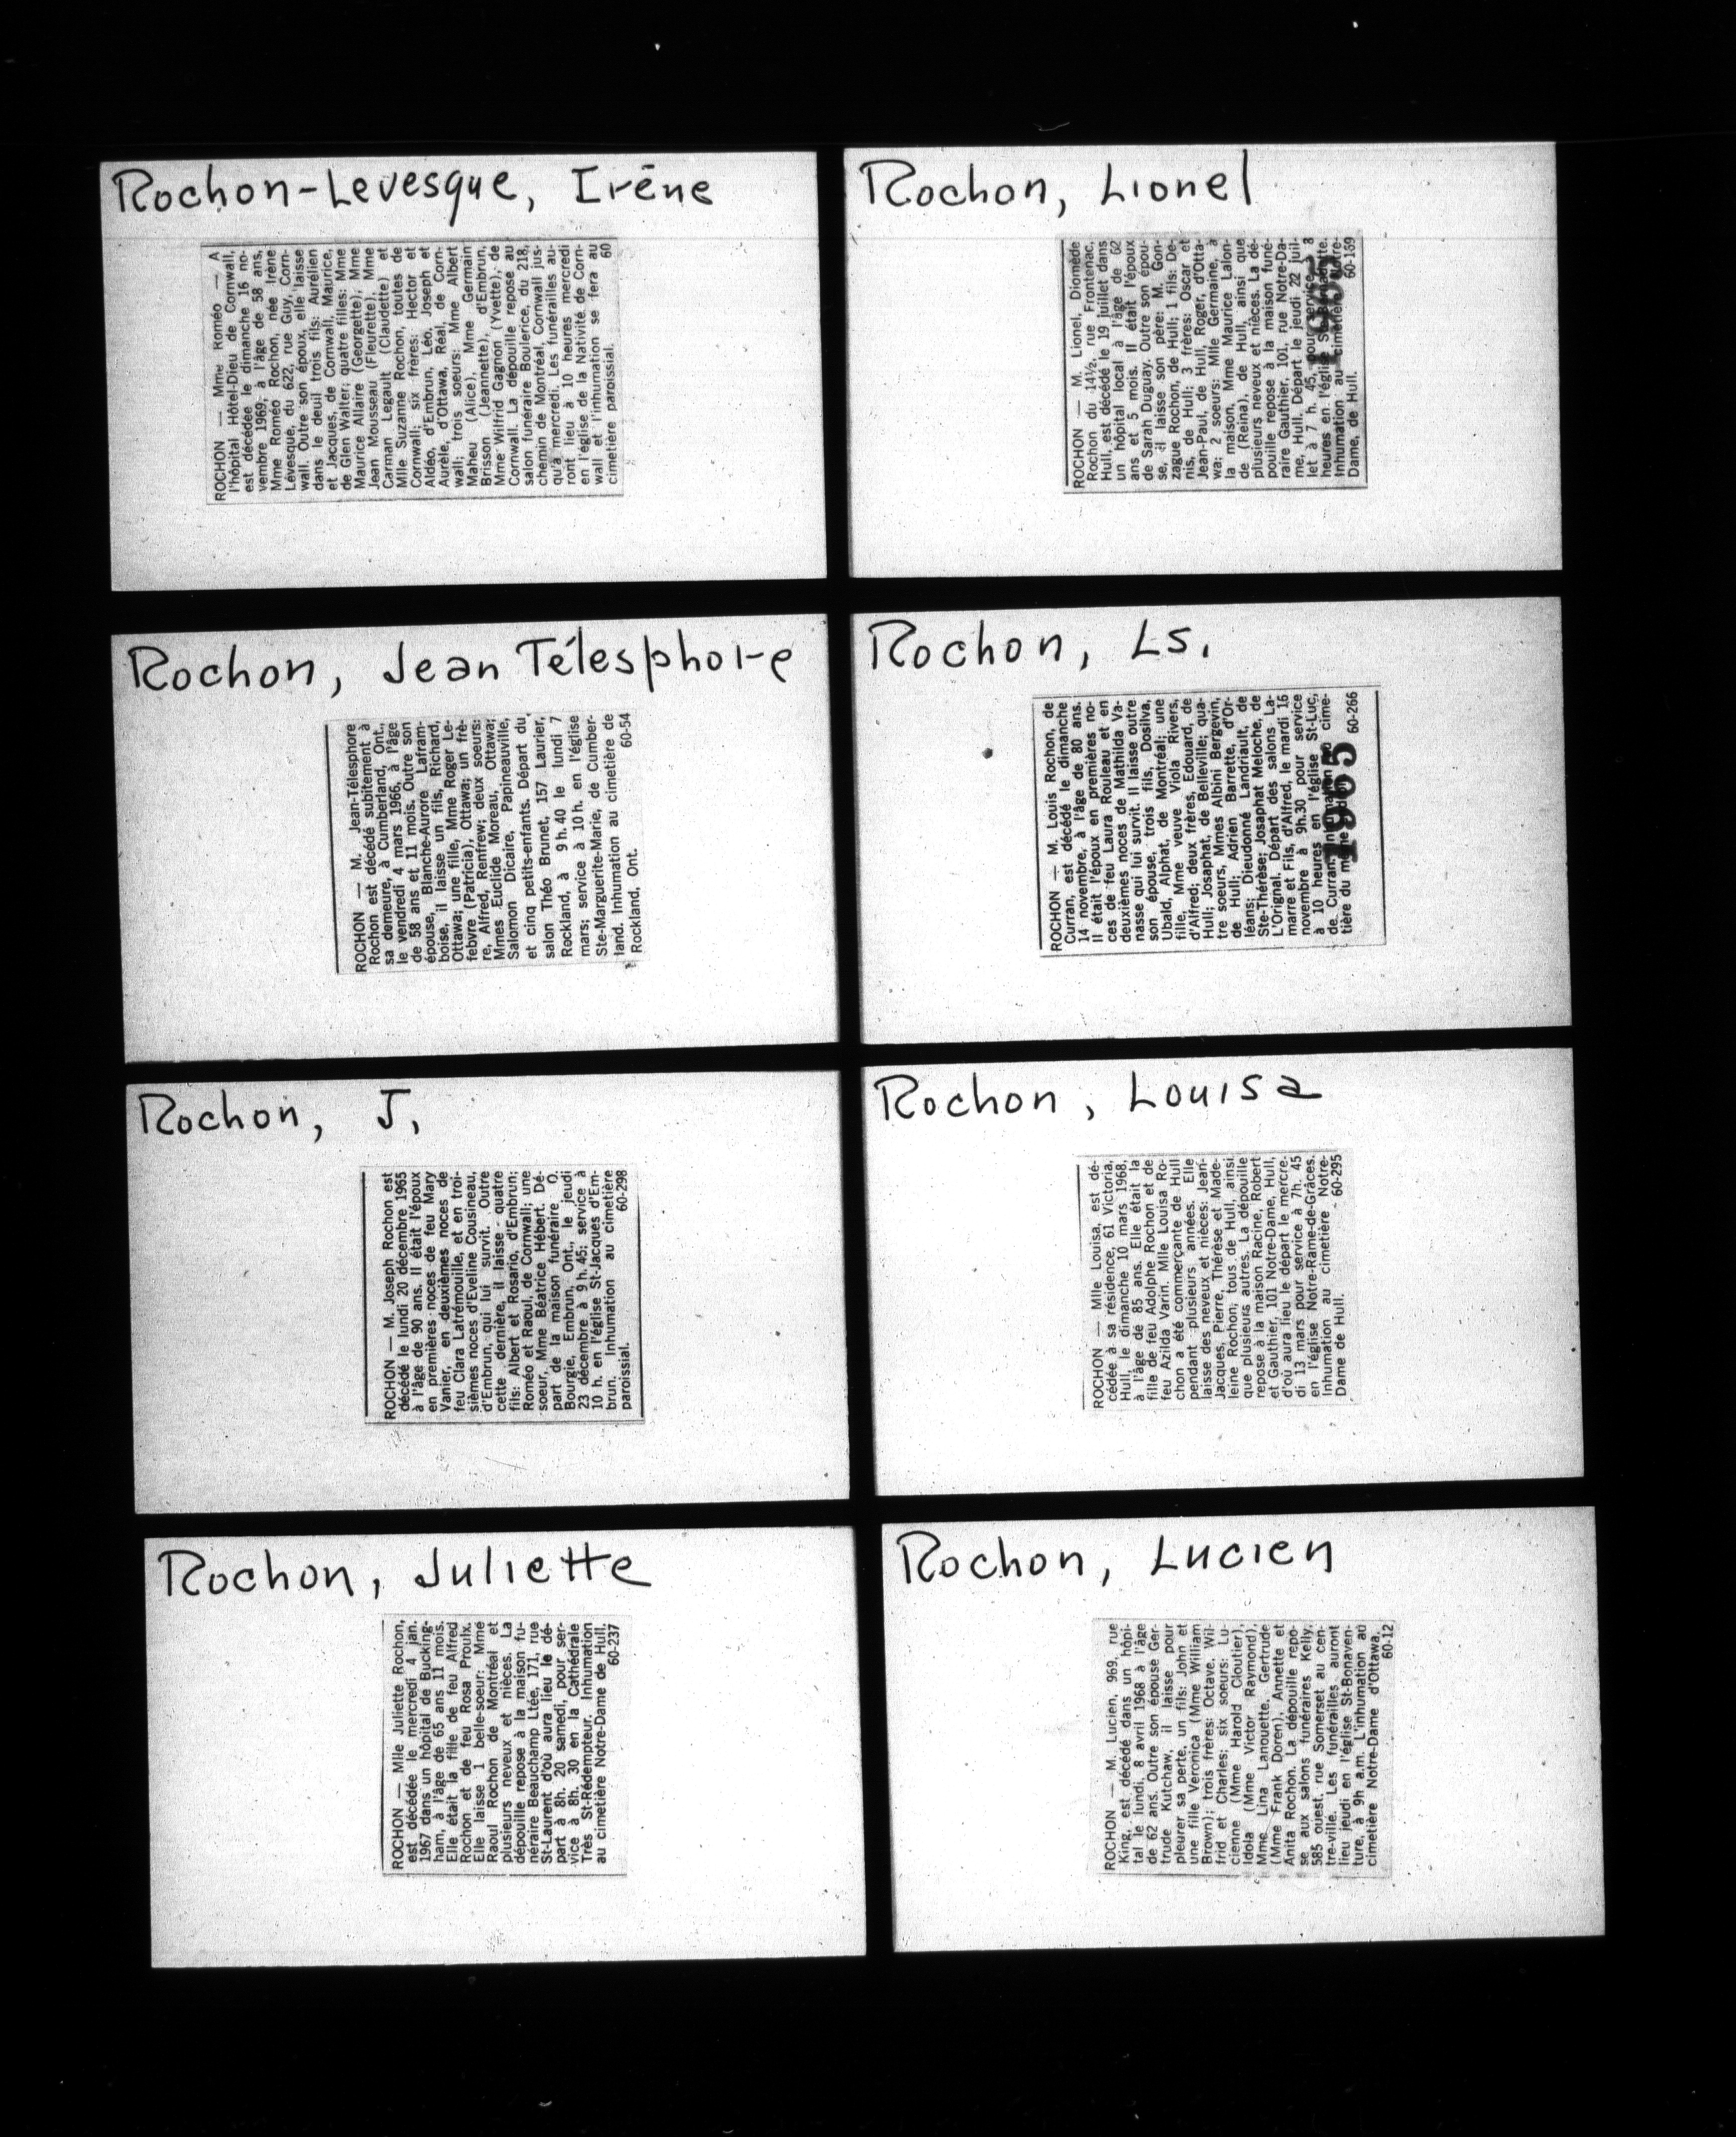 Rochon-Levesque, Irène
ROCHON — Mme Roméo — A
l'hôpital Hôtel-Dieu de Cornwall,
est décédée le dimanche 16 no-
vembre 1969, à l'âge de 58 ans,
Mme Roméo Rochon, née Irène
Lévesque, du 622, rue Guy, Corn-
wall. Outre son époux, elle laisse
dans le deuil trois fils: Aurélien
et Jacques, de Cornwall, Maurice,
de Glen Walter; quatre filles: Mme
Maurice Allaire (Georgette), Mme
Jean Mousseau (Fleurette), Mme
Carman Legault (Claudette) et
Mlle Suzanne Rochon, toutes de
Cornwall; six frères: Hector et
Aldéo, d'Embrun, Léo, Joseph et
Aurèle, d'Ottawa, Réal, de Corn-
wall; trois soeurs: Mme Albert
Maheu (Alice), Mme Germain
Brisson (Jeannette), d'Embrun,
Mme Wilfrid Gagnon (Yvette), de
Cornwall. La dépouille repose au
salon funéraire Boulerice, du 218,
chemin de Montréal, Cornwall jus-
qu'à mercredi. Les funérailles au-
ront lieu à 10 heures mercredi
en l'église de la Nativité de Corn-
wall et l'inhumation se fera au
cimetière paroissial. 60
Rochon, Lionel
ROCHON — M. Lionel, Diomède
Rochon du 14½, rue Frontenac,
Hull, est décédé le 19 juillet dans
un hôpital local à l'âge de 62
ans et 5 mois. Il était l'époux
de Sarah Duguay. Outre son épou-
se, il laisse son père: M. Gon-
zague Rochon, de Hull; 1 fils: De-
nis, de Hull; 3 frères: Oscar et
Jean-Paul, de Hull, Roger, d'Otta-
wa; 2 soeurs: Mlle Germaine, à
la maison, Mme Maurice Lalon-
de (Reina), de Hull, ainsi que
plusieurs neveux et nièces. La dé-
pouille repose à la maison funé-
raire Gauthier, 101, rue Notre-Da-
me, Hull. Départ le jeudi 22 juil-
let à 7 h. 45, pour service à 8
heures en l'église
Inhumation au cimetière Notre-
Dame, de Hull. 60-169
Rochon, Jean Télesphore
ROCHON — M. Jean-Télesphore
Rochon est décédé subitement à
sa demeure, à Cumberland, Ont.,
le vendredi 4 mars 1966, à l'âge
de 58 ans et 11 mois. Outre son
épouse, Blanche-Aurore Lafram-
boise, il laisse un fils, Richard,
Ottawa; une fille, Mme Roger Le-
febvre (Patricia), Ottawa; un frè-
re, Alfred, Renfrew; deux soeurs:
Mmes Euclide Moreau, Ottawa;
Salomon Dicaire, Papineauville,
et cinq petits-enfants. Départ du
salon Théo Brunet, 157 Laurier,
Rockland, à 9 h. 40 le lundi 7
mars; service à 10 h. en l'église
Ste-Marguerite-Marie, de Cumber-
land. Inhumation au cimetière de
Rockland, Ont. 60-54
Rochon, Ls.
ROCHON — M. Louis Rochon, de
Curran, est décédé le dimanche
14 novembre, à l'âge de 80 ans.
Il était l'époux en premières no-
ces de feu Laura Rouleau et en
deuxièmes noces de Mathilda Va-
nasse qui lui survit. Il laisse outre
son épouse, trois fils, Dosilva,
Ubald, Alphat, de Montréal; une
fille, Mme veuve Viola Rivers,
d'Alfred; deux frères, Edouard, de
Hull; Josaphat, de Belleville; qua-
tre soeurs, Mmes Albini Bergevin,
de Hull; Adrien Barrette, d'Or-
léans; Dieudonné Landriault, de
Ste-Thérèse; Josaphat Meloche, de
L'Orignal. Départ des salons La-
marre et Fils, d'Alfred, le mardi 16
novembre à 9h.30 pour service
à 10 heures en l'église St-Luc,
de Curran. Inhumation au cime-
tière du même endroit. 60-266
1965
Rochon, J.
ROCHON — M. Joseph Rochon est
décédé le lundi 20 décembre 1965
à l'âge de 90 ans. Il était l'époux
en premières noces de feu Mary
Vanier, en deuxièmes noces de
feu Clara Latrémouille, et en troi-
sièmes noces d'Eveline Cousineau,
d'Embrun, qui lui survit. Outre
cette dernière, il laisse quatre
fils: Albert et Rosario, d'Embrun;
Roméo et Raoul, de Cornwall; une
soeur, Mme Béatrice Hébert. Dé-
part de la maison funéraire O.
Bourgie, Embrun, Ont., le jeudi
23 décembre à 9 h. 45; service à
10 h. en l'église St-Jacques d'Em-
brun. Inhumation au cimetière
paroissial. 60-298
Rochon, Louisa
ROCHON — Mlle Louisa, est dé-
cédée à sa résidence, 61 Victoria,
Hull, le dimanche 10 mars 1968,
à l'âge de 85 ans. Elle était la
fille de feu Adolphe Rochon et de
feu Azilda Varin. Mlle Louisa Ro-
chon a été commerçante de Hull
pendant plusieurs années. Elle
laisse des neveux et nièces: Jean-
Jacques, Pierre, Thérèse et Made-
leine Rochon, tous de Hull, ainsi
que plusieurs autres. La dépouille
repose à la maison Racine, Robert
et Gauthier, 101 Notre-Dame, Hull,
d'où aura lieu le départ le mercre-
di 13 mars pour service à 7h. 45
en l'église Notre-Rame-de-Grâces.
Inhumation au cimetière Notre-
Dame de Hull. 60-295
Rochon, Juliette
ROCHON — Mlle Juliette Rochon,
est décédée le mercredi 4 jan.
1967 dans un hôpital de Bucking-
ham, à l'âge de 65 ans 11 mois.
Elle était la fille de feu Alfred
Rochon et de feu Rosa Proulx.
Elle laisse 1 belle-soeur: Mme
Raoul Rochon de Montréal et
plusieurs neveux et nièces. La
dépouille repose à la maison fu-
néraire Beauchamp Ltée, 171, rue
St-Laurent d'où aura lieu le dé-
part à 8h. 20 samedi, pour ser-
vice à 8h. 30 en la Cathédrale
Très St-Rédempteur. Inhumation
au cimetière Notre-Dame de Hull.
60-237
Rochon, Lucien
ROCHON — M. Lucien, 969, rue
King, est décédé dans un hôpi-
tal le lundi, 8 avril 1968 à l'âge
de 62 ans. Outre son épouse Ger-
trude Kutchaw, il laisse pour
pleurer sa perte, un fils: John et
une fille Veronica (Mme William
Brown); trois frères: Octave, Wil-
frid et Charles; six soeurs: Lu-
cienne (Mme Harold Cloutier),
Idola (Mme Victor Raymond),
Mme Lina Lanouette, Gertrude
(Mme Frank Doren), Annette et
Anita Rochon. La dépouille repo-
se aux salons funéraires Kelly,
585 ouest, rue Somerset au cen-
tre-ville. Les funérailles auront
lieu jeudi en l'église St-Bonaven-
ture, à 9h a.m. L'inhumation au
cimetière Notre-Dame d'Ottawa.
60-12